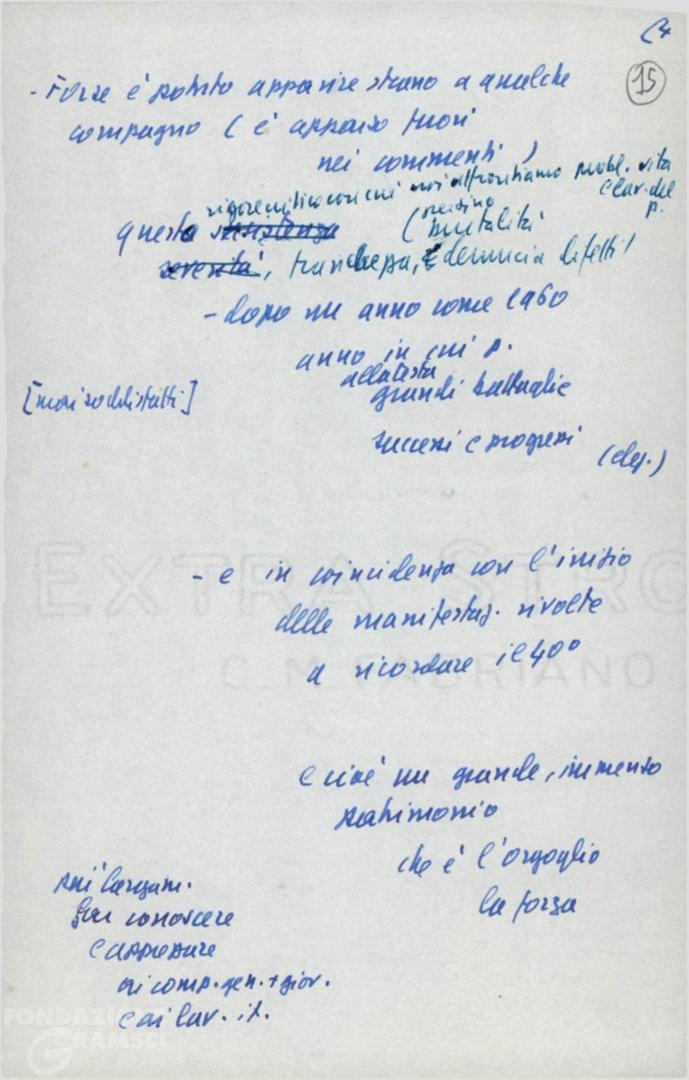 (4
15
- Forse è potuto apparire strano a qualche
compagno ( è apparso fuori
nei commenti )
rigore critico con cui noi affrontiamo probl. vita
e lav. del
p.
questo insistenza (persino
brutalità
severità, franchezza, denuncia difetti)
- dopo un anno come 1960
anno in cui p.
alla testa
grandi battaglie
[mai soddisfatti]
successi e progressi
(elez.)
EXTRA STRO
- e in coincidenza con l'inizio
delle manifestaz. rivolte
a ricordare il 40°
C.M. FABRIANO
e cioè un grande, immenso
patrimonio
che è l'orgoglio
la forza
più largam.
far conoscere
e apprezzare
ai comp. gen. + giov.
e ai lav. it.
FONDAZI
GRAMSCI